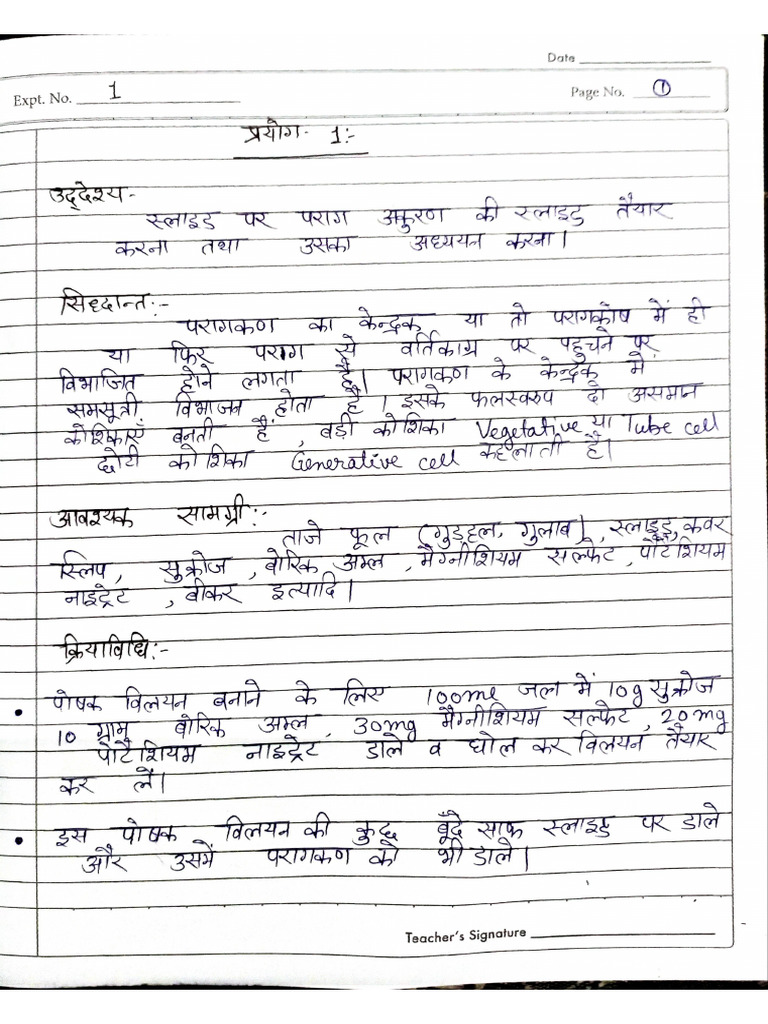 Date
Expt. No. 1
Page No. 1
प्रयोग- 1:-
उद्देश्य-
स्लाइड पर पराग अकुरण की स्लाइड तैयार
करना तथा उसका अध्ययन करना।
सिध्दान्त:-
परागकण का केन्द्रक या तो परागकोष में ही
या फिर पराग से वर्तिकाग्र पर पहुचने पर
विभाजित होने लगता है। परागकण के केन्द्रक में
समसूत्री विभाजन होता है। इसके फलस्वरुप दो असमान
कोशिकाएँ बनती हैं, बड़ी कोशिका Vegetative या Tube cell
छोटी कोशिका Generative cell कहलाती है।
आवश्यक सामग्री:-
ताजे फूल (गुड़हल, गुलाब), स्लाइड, कवर
स्लिप, सुक्रोज, बोरिक अम्ल, मैग्नीशियम सल्फेट, पोटेशियम
नाइट्रेट, बीकर इत्यादि।
क्रियाविधि:-
• पोषक विलयन बनाने के लिए 100ml जल में 10g सुक्रोज
10 ग्राम बोरिक अम्ल, 30mg मैग्नीशियम सल्फेट, 20mg
पोटैशियम नाइट्रेट डाले व घोल कर विलयन तैयार
कर लें।
• इस पोषक विलयन की कुछ बूँदे साफ स्लाइड पर डाले
और उसमें परागकण को भी डाले।
Teacher's Signature